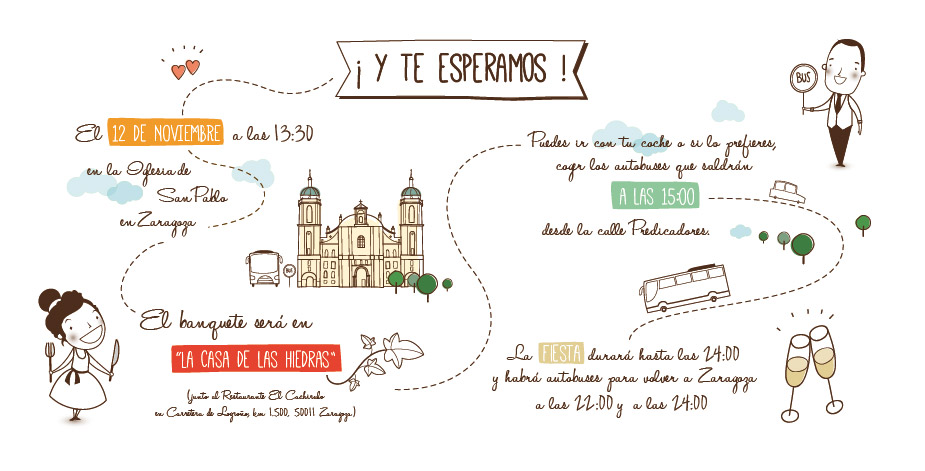 ¡ Y TE ESPERAMOS !
El 12 DE NOVIEMBRE a las 13:30
en la Iglesia de
San Pablo
en Zaragoza
BUS
El banquete será en
"LA CASA DE LAS HIEDRAS"
(junto al Restaurante El Cachirulo
en Carretera de Logroño, km 1.500, 50011 Zaragoza)
BUS
Puedes ir con tu coche o si lo prefieres,
cogr los autobuses que saldrán
A LAS 15:00
desde la calle Predicadores.
La FIESTA durará hasta las 24:00
y habrá autobuses para volver a Zaragoza
a las 22:00 y a las 24:00